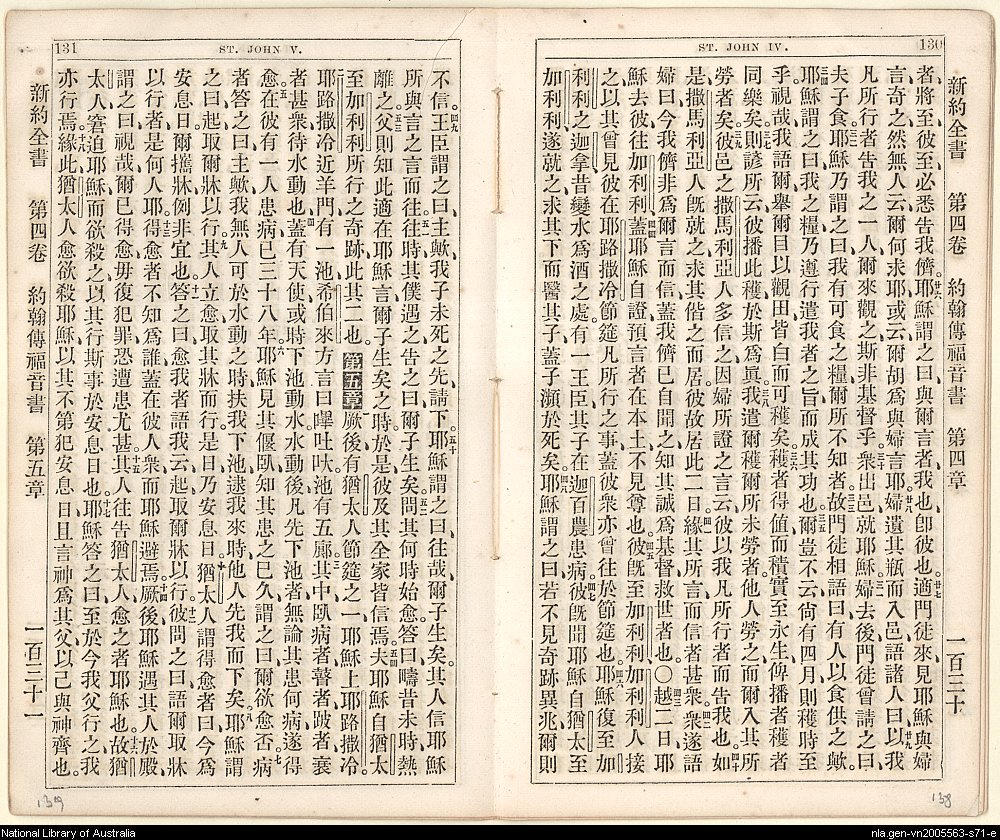 130
ST. JOHN IV.
新約全書 第四卷 約翰傳福音書 第四章 一百三十
者將至彼至必悉告我儕耶穌謂之曰與爾言者我也卽彼也適門徒來見耶穌與婦
言奇之然無人云爾何求耶或云爾胡爲與婦言耶婦遺其瓶而入邑語諸人曰以我
凡所行者告我之一人爾來觀之斯非基督乎衆出邑就耶穌婦去後門徒曾請之曰
夫子食耶穌乃謂之曰我有可食之糧爾所不知者故門徒相語曰有人以食供之歟
耶穌謂之曰我之糧乃遵行遣我者之旨而成其功也爾豈不云尙有四月則穫時至
乎視哉我語爾舉爾目以觀田皆白而可穫矣穫者得値而積實至永生俾播者穫者
同樂矣則諺所云彼播此穫於斯爲眞我遣爾穫爾所未勞者他人勞之而爾入其所
勞者矣彼邑之撒馬利亞人多信之因婦所證之言云彼以我凡所行者而告我也如
是撒馬利亞人旣就之求其偕之而居彼故居此二日緣其所言而信者甚衆衆遂語
婦曰今我儕非爲爾言而信蓋我儕已自聞之知其誠爲基督救世者也〇越二日耶
穌去彼往加利利蓋耶穌自證預言者在本土不見尊也彼旣至加利利加利利人接
之以其曾見彼在耶路撒冷節筵凡所行之事蓋彼衆亦曾往於節筵也耶穌復至加
利利之迦拿昔變水爲酒之處有一王臣其子在迦百農患病彼旣聞耶穌自猶太至
加利利遂就之求其下而醫其子蓋子瀕於死矣耶穌謂之曰若不見奇跡異兆爾則
138
131
ST. JOHN V.
不信王臣謂之曰主歟我子未死之先請下耶穌謂之曰往哉爾子生矣其人信耶穌
所與言之言而往往時其僕遇之告之曰爾子生矣問其何時始愈答曰疇昔未時熱
離之父則知此適在耶穌言爾子生矣之時於是彼及其全家皆信焉夫耶穌自猶太
至加利利所行之奇跡此其二也 第五章 厥後有猶太人節筵之一耶穌上耶路撒冷
耶路撒冷近羊門有一池希伯來方言曰嗶吐吠池有五廊其中臥病者瞽者跛者衰
者甚衆待水動也蓋有天使或時下池動水水動後凡先下池者無論其患何病遂得
愈在彼有一人患病已三十八年耶穌見其偃臥知其患之已久謂之曰爾欲愈否病
者答之曰主歟我無人可於水動之時扶我下池逮我來時他人先我而下矣耶穌謂
之曰起取爾牀以行其人立愈取其牀而行是日乃安息日猶太人謂得愈者曰今爲
安息日爾攜牀例非宜也答之曰愈我者語我云起取爾牀以行彼問之曰語爾取牀
以行者是何人耶得愈者不知爲誰蓋在彼人衆而耶穌避焉厥後耶穌遇其人於殿
謂之曰視哉爾已得愈毋復犯罪恐遭患尤甚其人往告猶太人愈之者耶穌也故猶
太人窘迫耶穌而欲殺之以其行斯事於安息日也耶穌答之曰至於今我父行之我
亦行焉緣此猶太人愈欲殺耶穌以其不第犯安息日且言神爲其父以己與神齊也
新約全書 第四卷 約翰傳福音書 第五章 一百三十一
139
National Library of Australia
nla.gen-vn2005563-s71-e